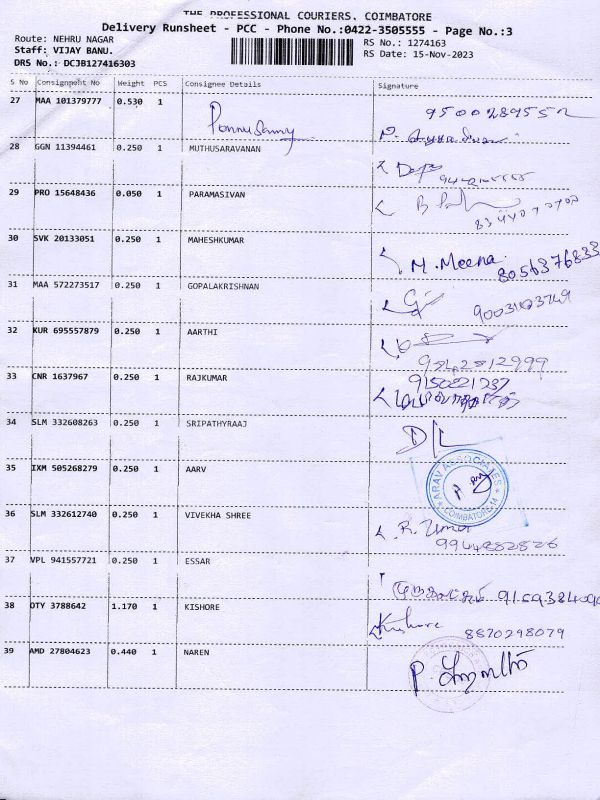 THE PROFESSIONAL COURIERS, COIMBATORE
Delivery Runsheet - PCC - Phone No.:0422-3505555 - Page No.:3
Route: NEHRU NAGAR
RS No.: 1274163
Staff: VIJAY BANU.
RS Date: 15-Nov-2023
DRS No.: DCJB127416303
S No Consignment No Weight PCS Consignee Details Signature
27 MAA 101379777 0.530 1 Ponnusamy
9500289552
28 GGN 11394461 0.250 1 MUTHUSARAVANAN
29 PRO 15648436 0.050 1 PARAMASIVAN
30 SVK 20133051 0.250 1 MAHESHKUMAR
M. Meena
8056376833
31 MAA 572273517 0.250 1 GOPALAKRISHNAN
32 KUR 695557879 0.250 1 AARTHI
33 CNR 1637967 0.250 1 RAJKUMAR
9150221237
34 SLM 332608263 0.250 1 SRIPATHYRAAJ
35 IXM 505268279 0.250 1 AARV
ARAV ASSOCIATES
COIMBATORE-14
36 SLM 332612740 0.250 1 VIVEKHA SHREE
R. Uma
9944282826
37 VPL 941557721 0.250 1 ESSAR
38 OTY 3788642 1.170 1 KISHORE
Kishore 8870298079
39 AMD 27804623 0.440 1 NAREN